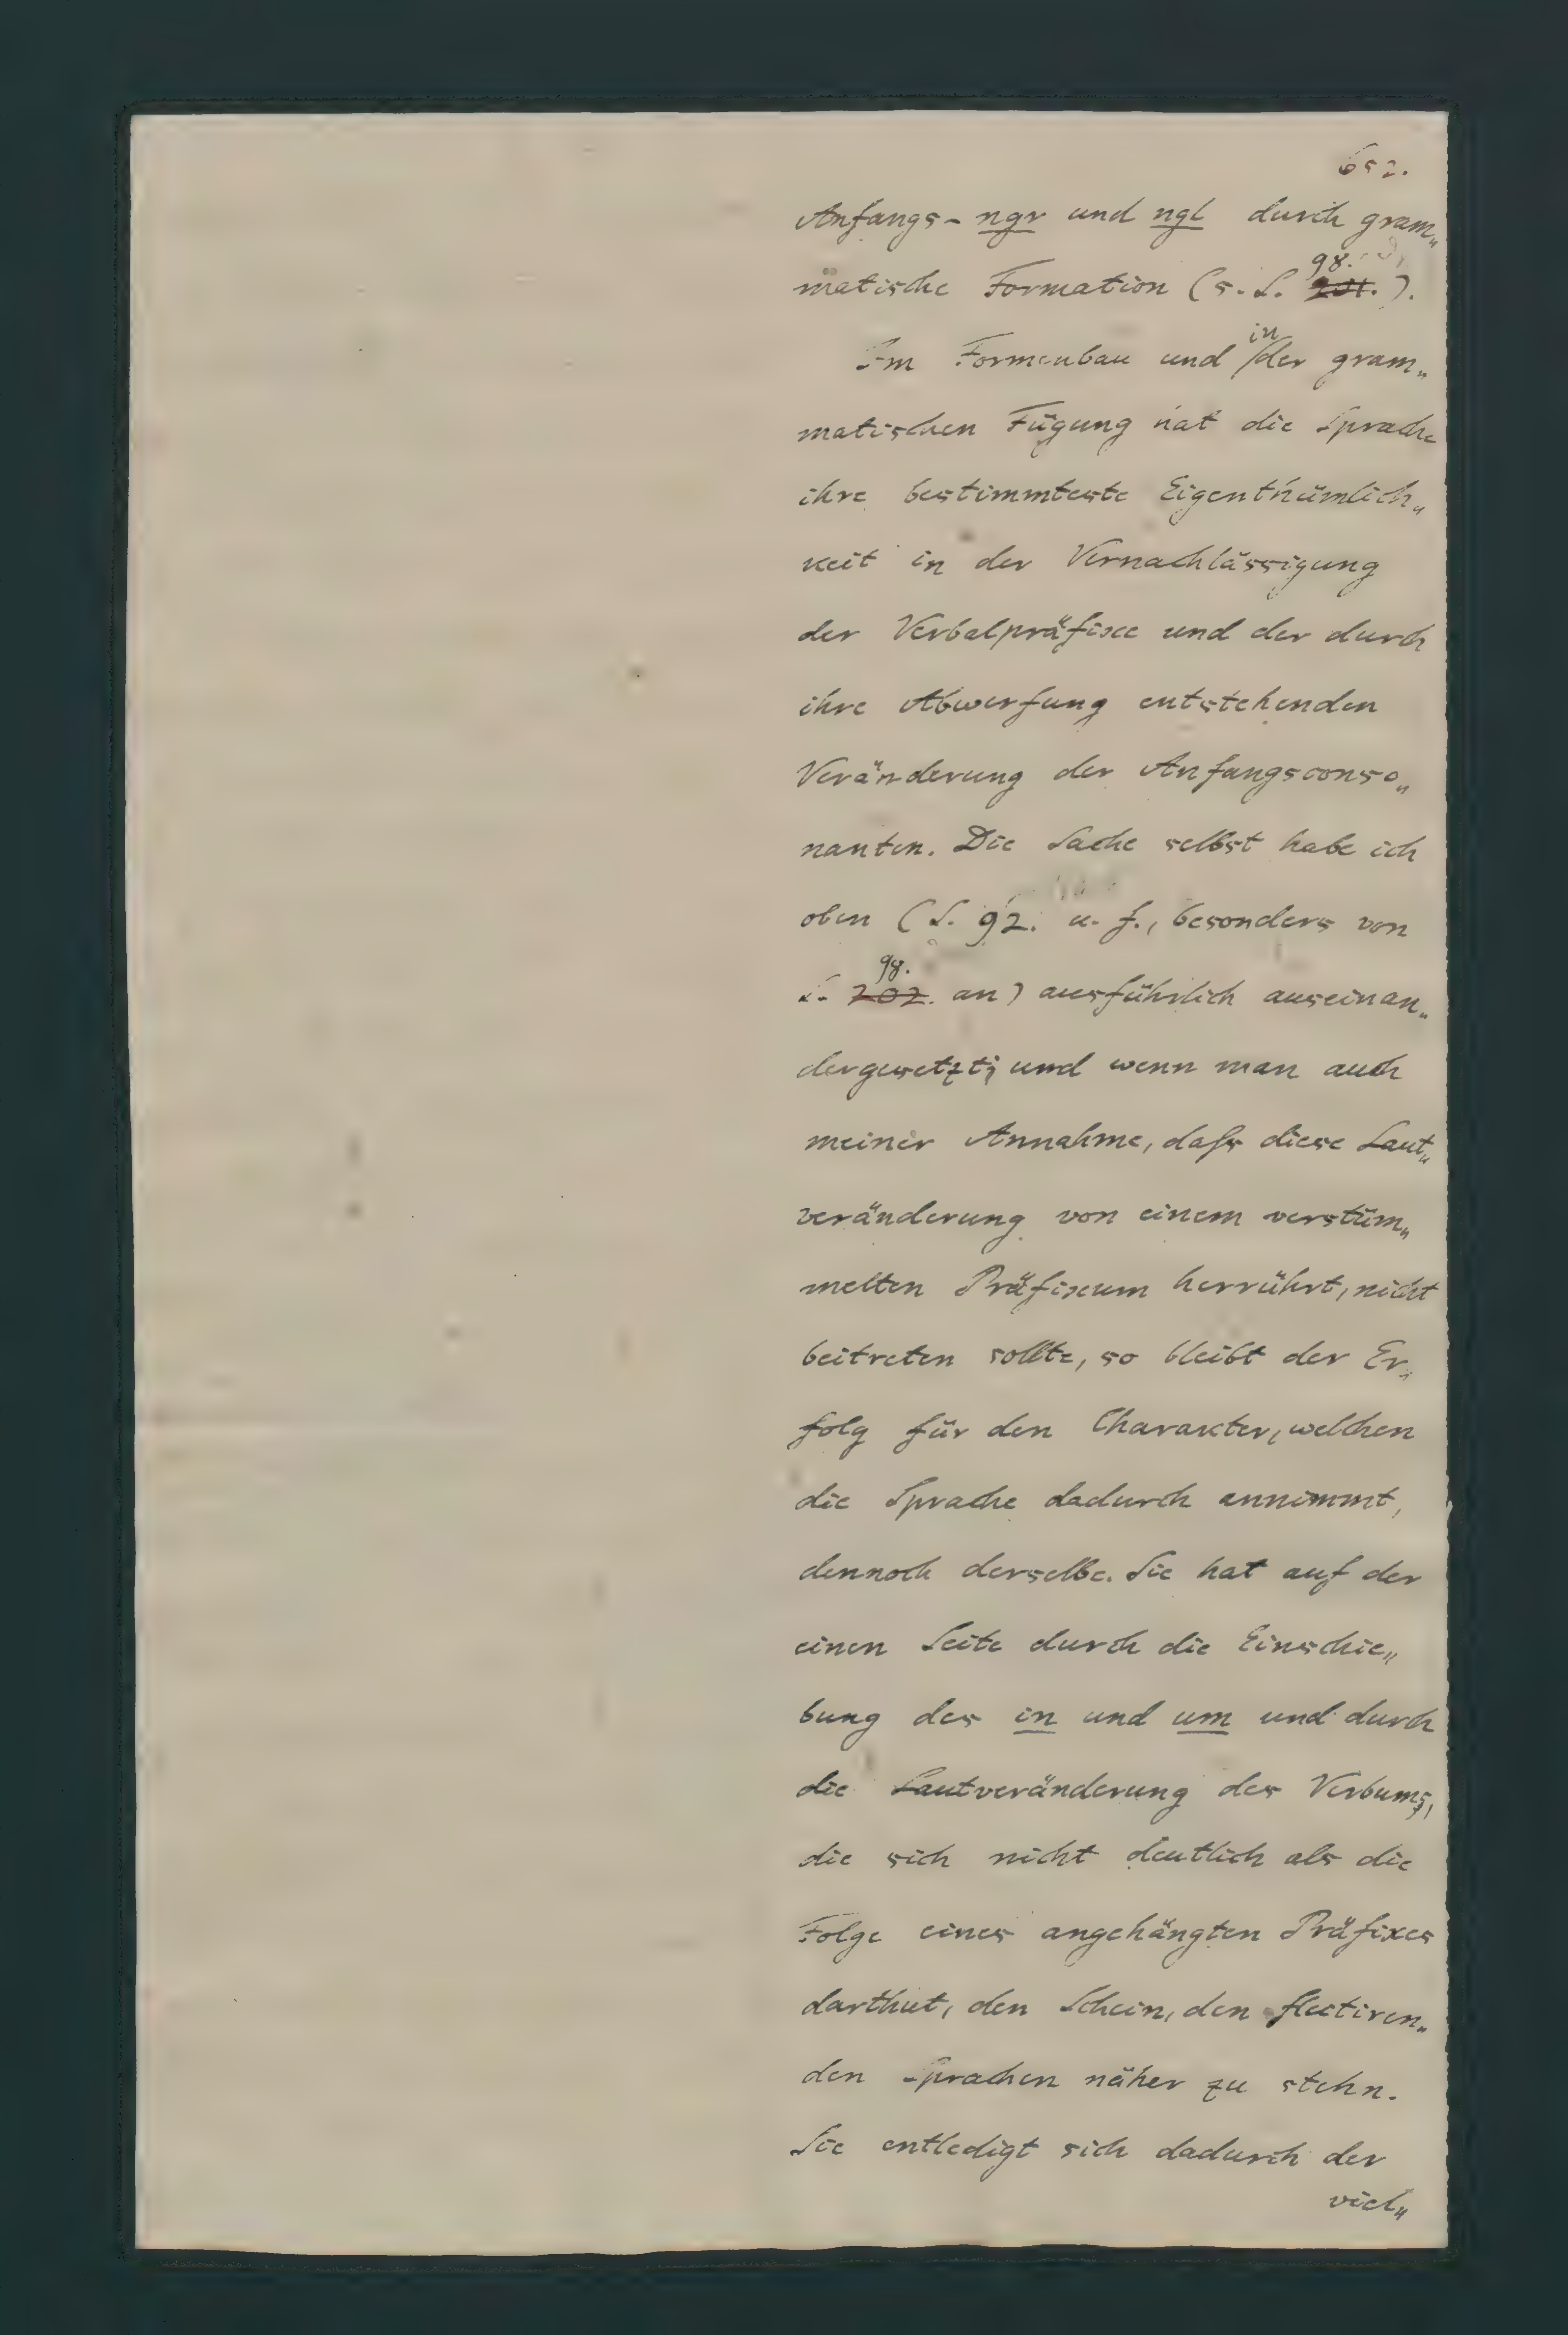 652.
Anfangs- ngr und ngl durch gram„
matische Formation (s. S. 98. 201.).
Im Formenbau und in der gram„
matischen Fügung hat die Sprache
ihre bestimmteste Eigenthümlich„
keit in der Vernachlässigung
der Verbalpräfixe und der durch
ihre Abwerfung entstehenden
Veränderung der Anfangsconso„
nanten. Die Sache selbst habe ich
oben (S. 92. u. f., besonders von
S. 98. 202. an) ausführlich auseinan„
dergesetzt; und wenn man auch
meiner Annahme, daſs diese Laut„
veränderung von einem verstüm„
melten Präfixum herrührt, nicht
beitreten sollte, so bleibt der Er„
folg für den Charakter, welchen
die Sprache dadurch annimmt,
dennoch derselbe. Sie hat auf der
einen Seite durch die Einschie„
bung des in und um und durch
die Lautveränderung des Verbums,
die sich nicht deutlich als die
Folge eines angehängten Präfixes
darthut, den Schein, den flectiren„
den Sprachen näher zu stehn.
Sie entledigt sich dadurch der
viel„